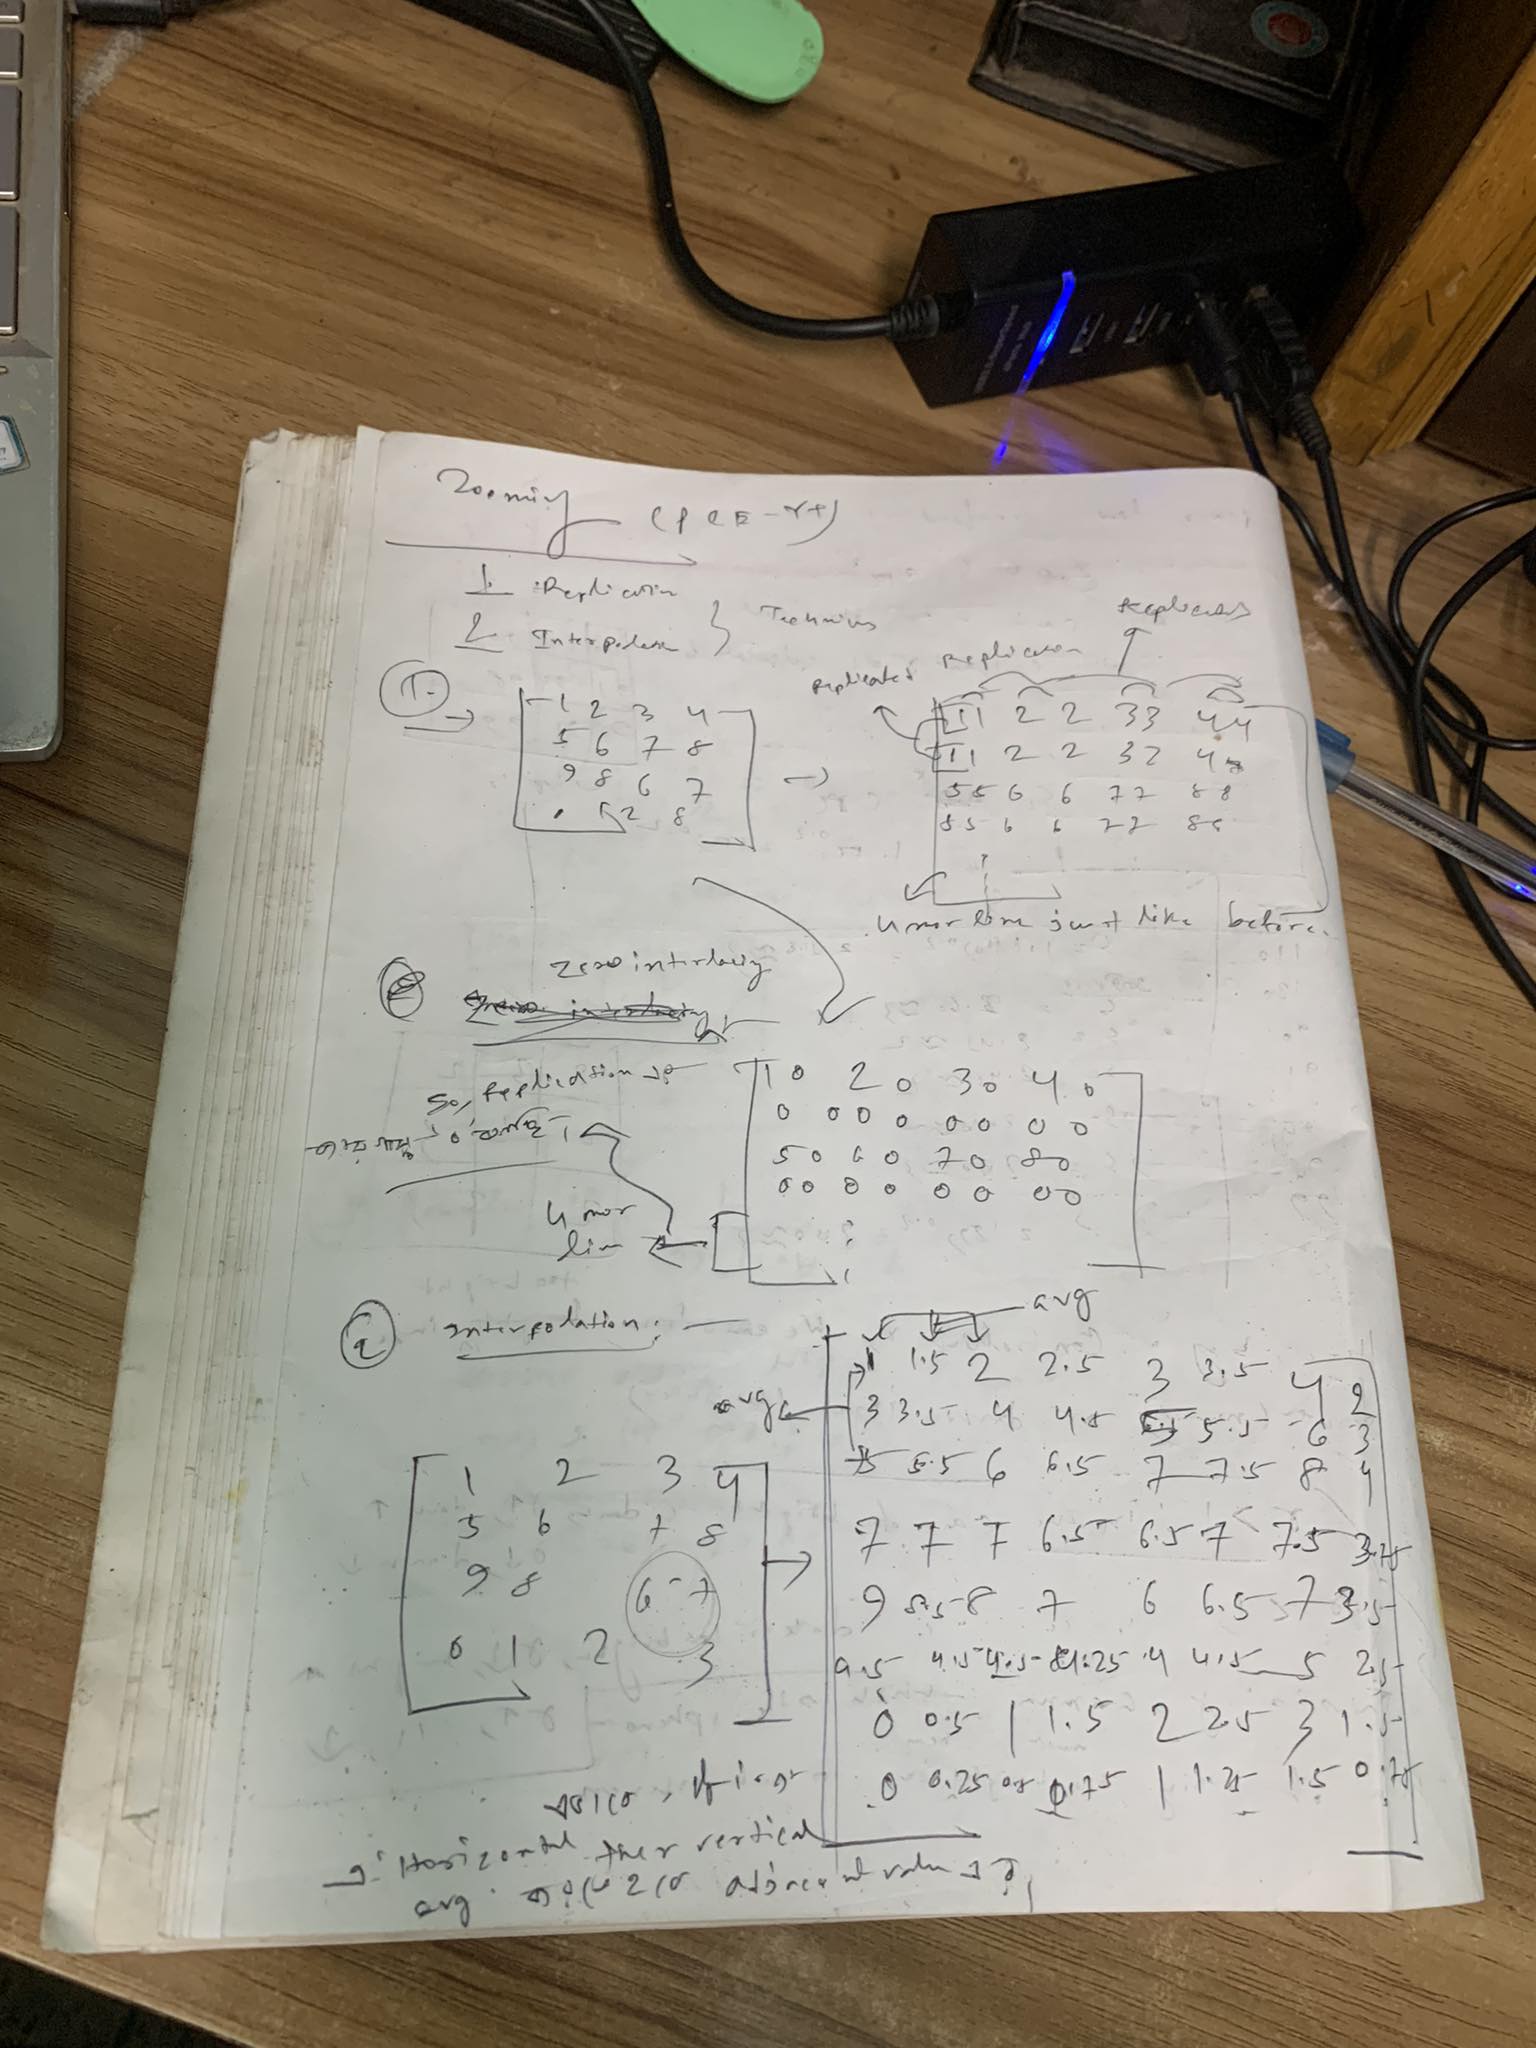 Zooming
1. Replication
2 Interpolation } Techniques
Replicated
Replicated Replication
1.
1 2 3 4
5 6 7 8
9 8 6 7
8
→
11 2 2 33 44
11 2 2 33 4
55 6 6 77 88
55 6 6 77 88
4 mor line just like before.
Zero interlacing
So, Replication
1 0 2 0 3 0 4 0
0 0 0 0 0 0 0 0
5 0 6 0 7 0 8 0
0 0 0 0 0 0 0 0
4 mor
line
2 Interpolation: —
avg
avg
1 2 3 4
5 6 7 8
9 8 6 7
0 1 2 3
→
1 1.5 2 2.5 3 3.5 4 2
3 3.5 4 4.5 5.5 6 3
5 5.5 6 6.5 7 7.5 8 4
7 7 7 6.5 6.5 7 7.5 3.75
9 8.5 8 7 6 6.5 7 3.5
4.5 4.5 4.25 4 4.5 5 2.5
0 0.5 1 1.5 2 2.5 3 1.5
0 0.25 0.5 0.75 1 1.25 1.5 0.75
first
Horizontal then vertical
avg adjacent value